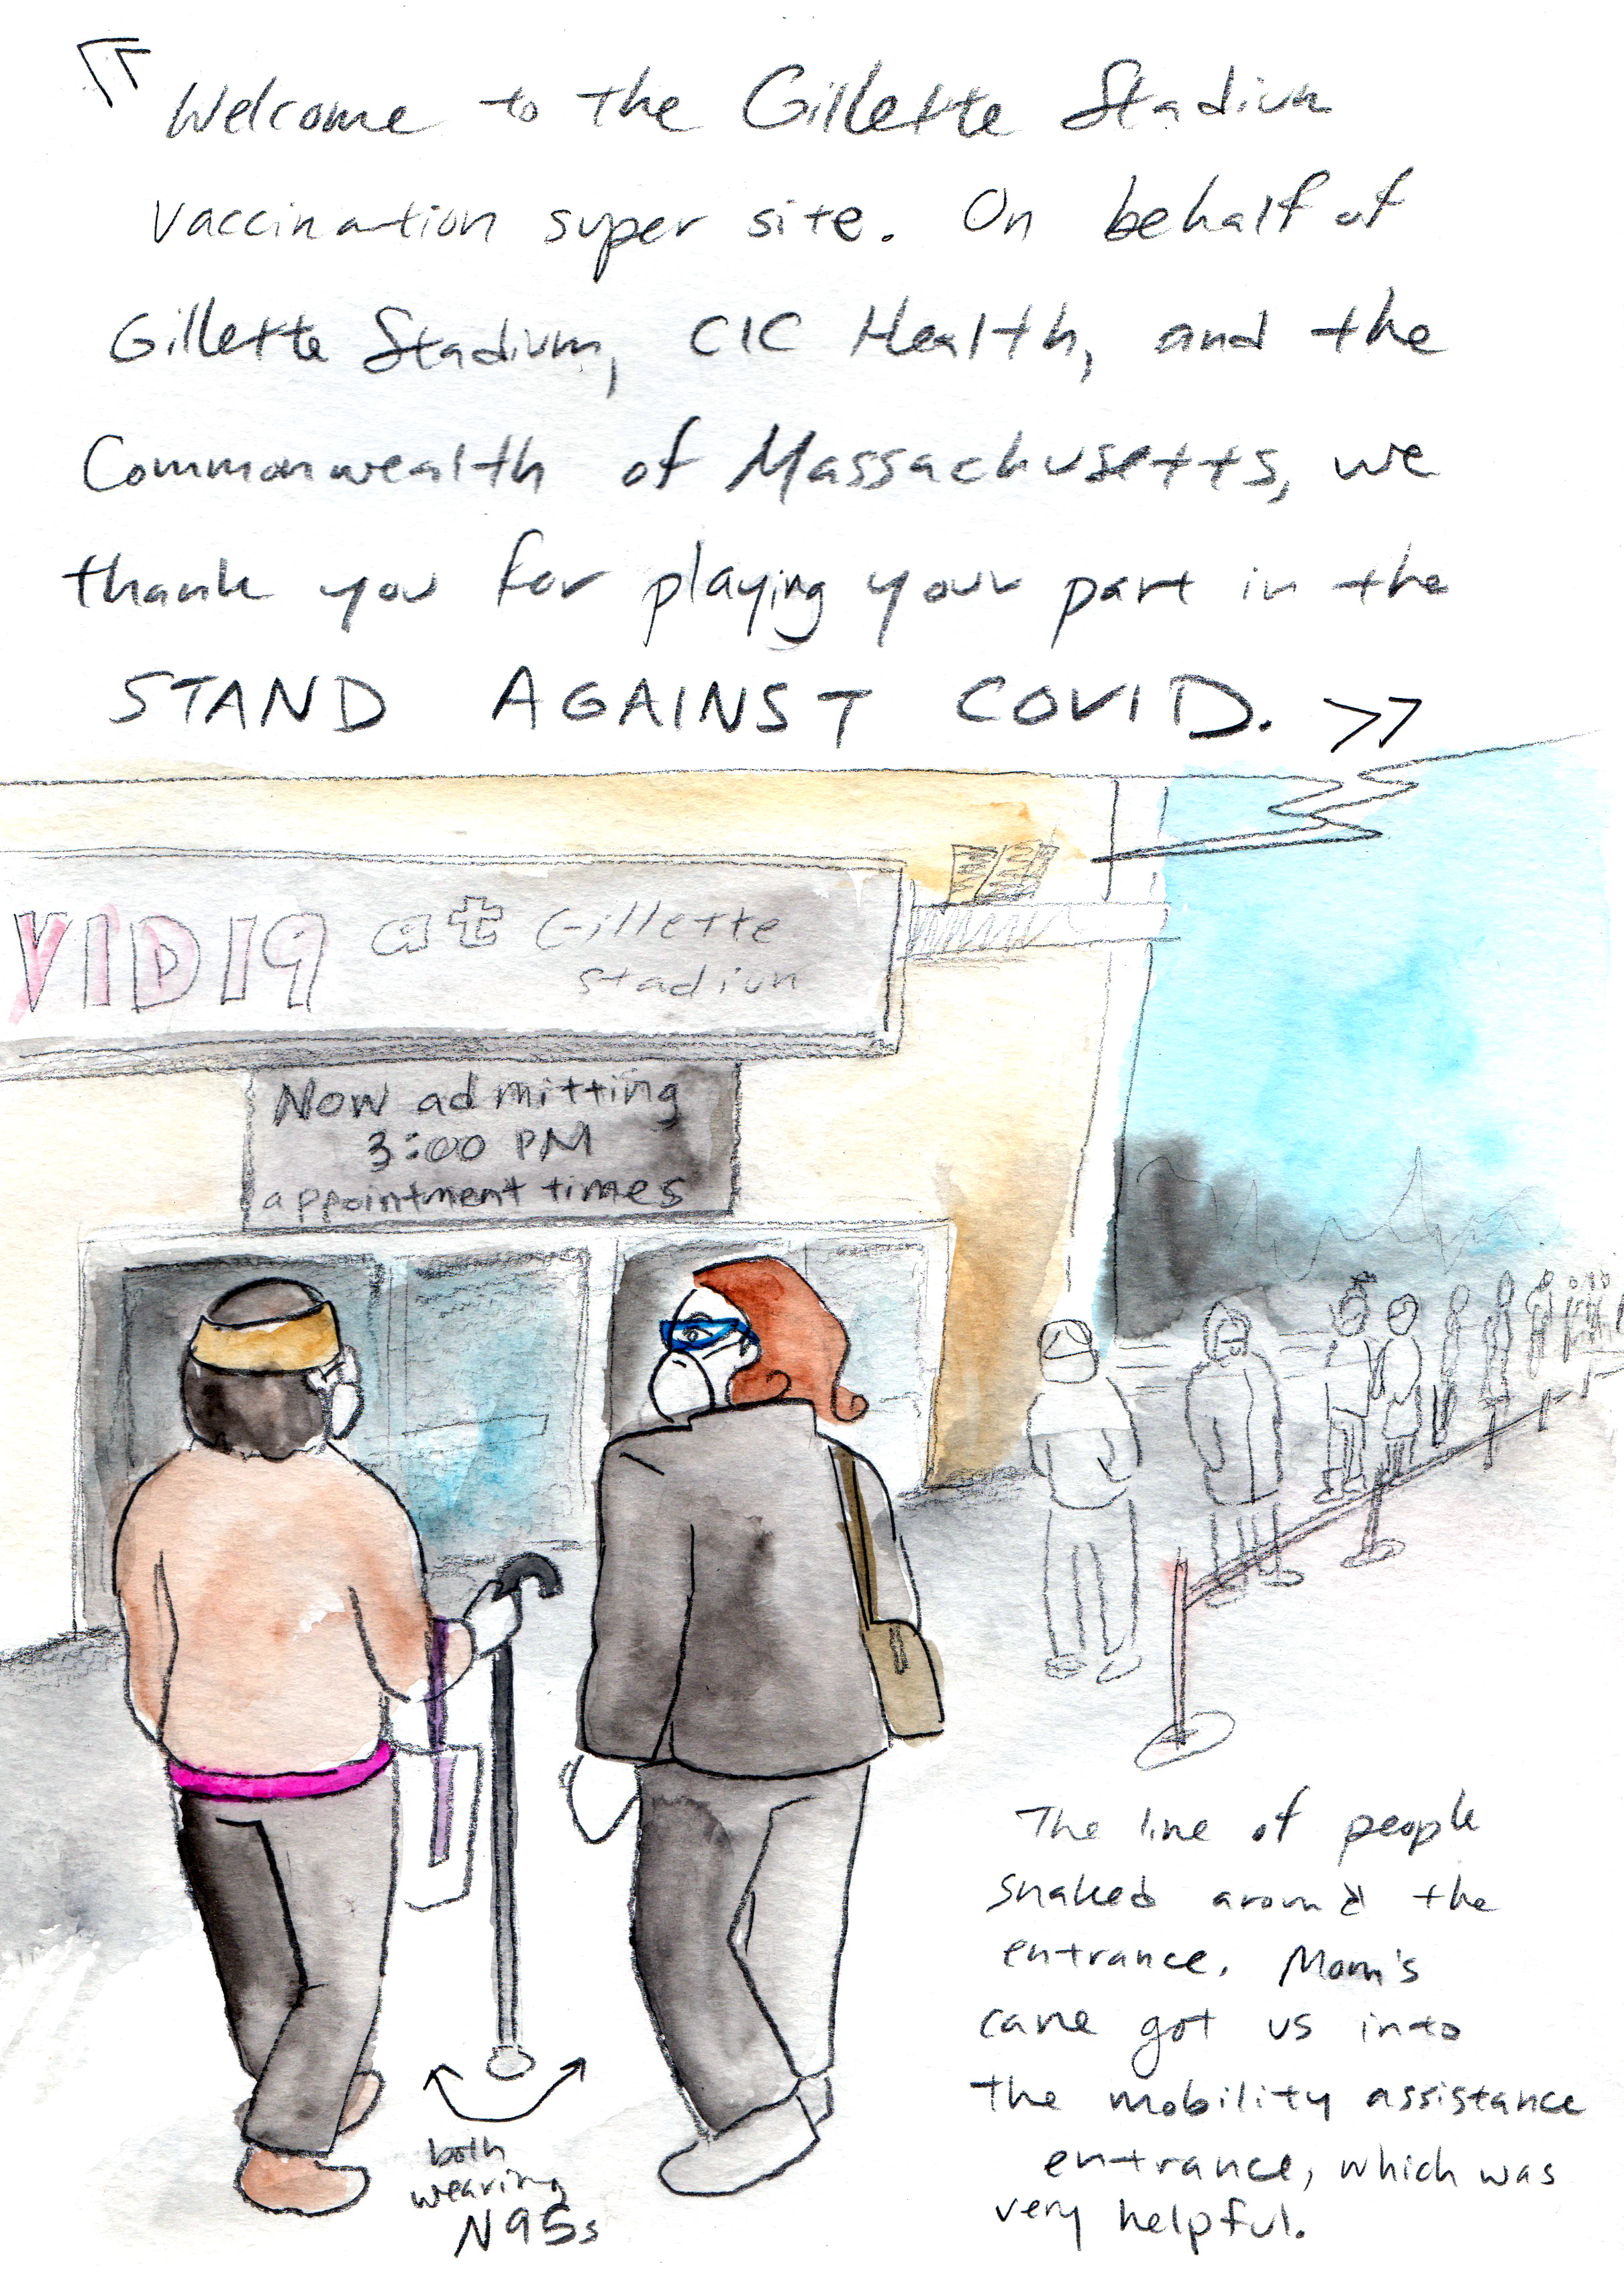 « Welcome to the Gillette Stadium
vaccination super site. On behalf of
Gillette Stadium, CIC Health, and the
Commonwealth of Massachusetts, we
thank you for playing your part in the
STAND AGAINST COVID. »
VID19 at Gillette
Stadium
Now admitting
3:00 PM
appointment times
The line of people
snaked around the
entrance. Mom's
cane got us into
the mobility assistance
entrance, which was
very helpful.
both
wearing
N95s